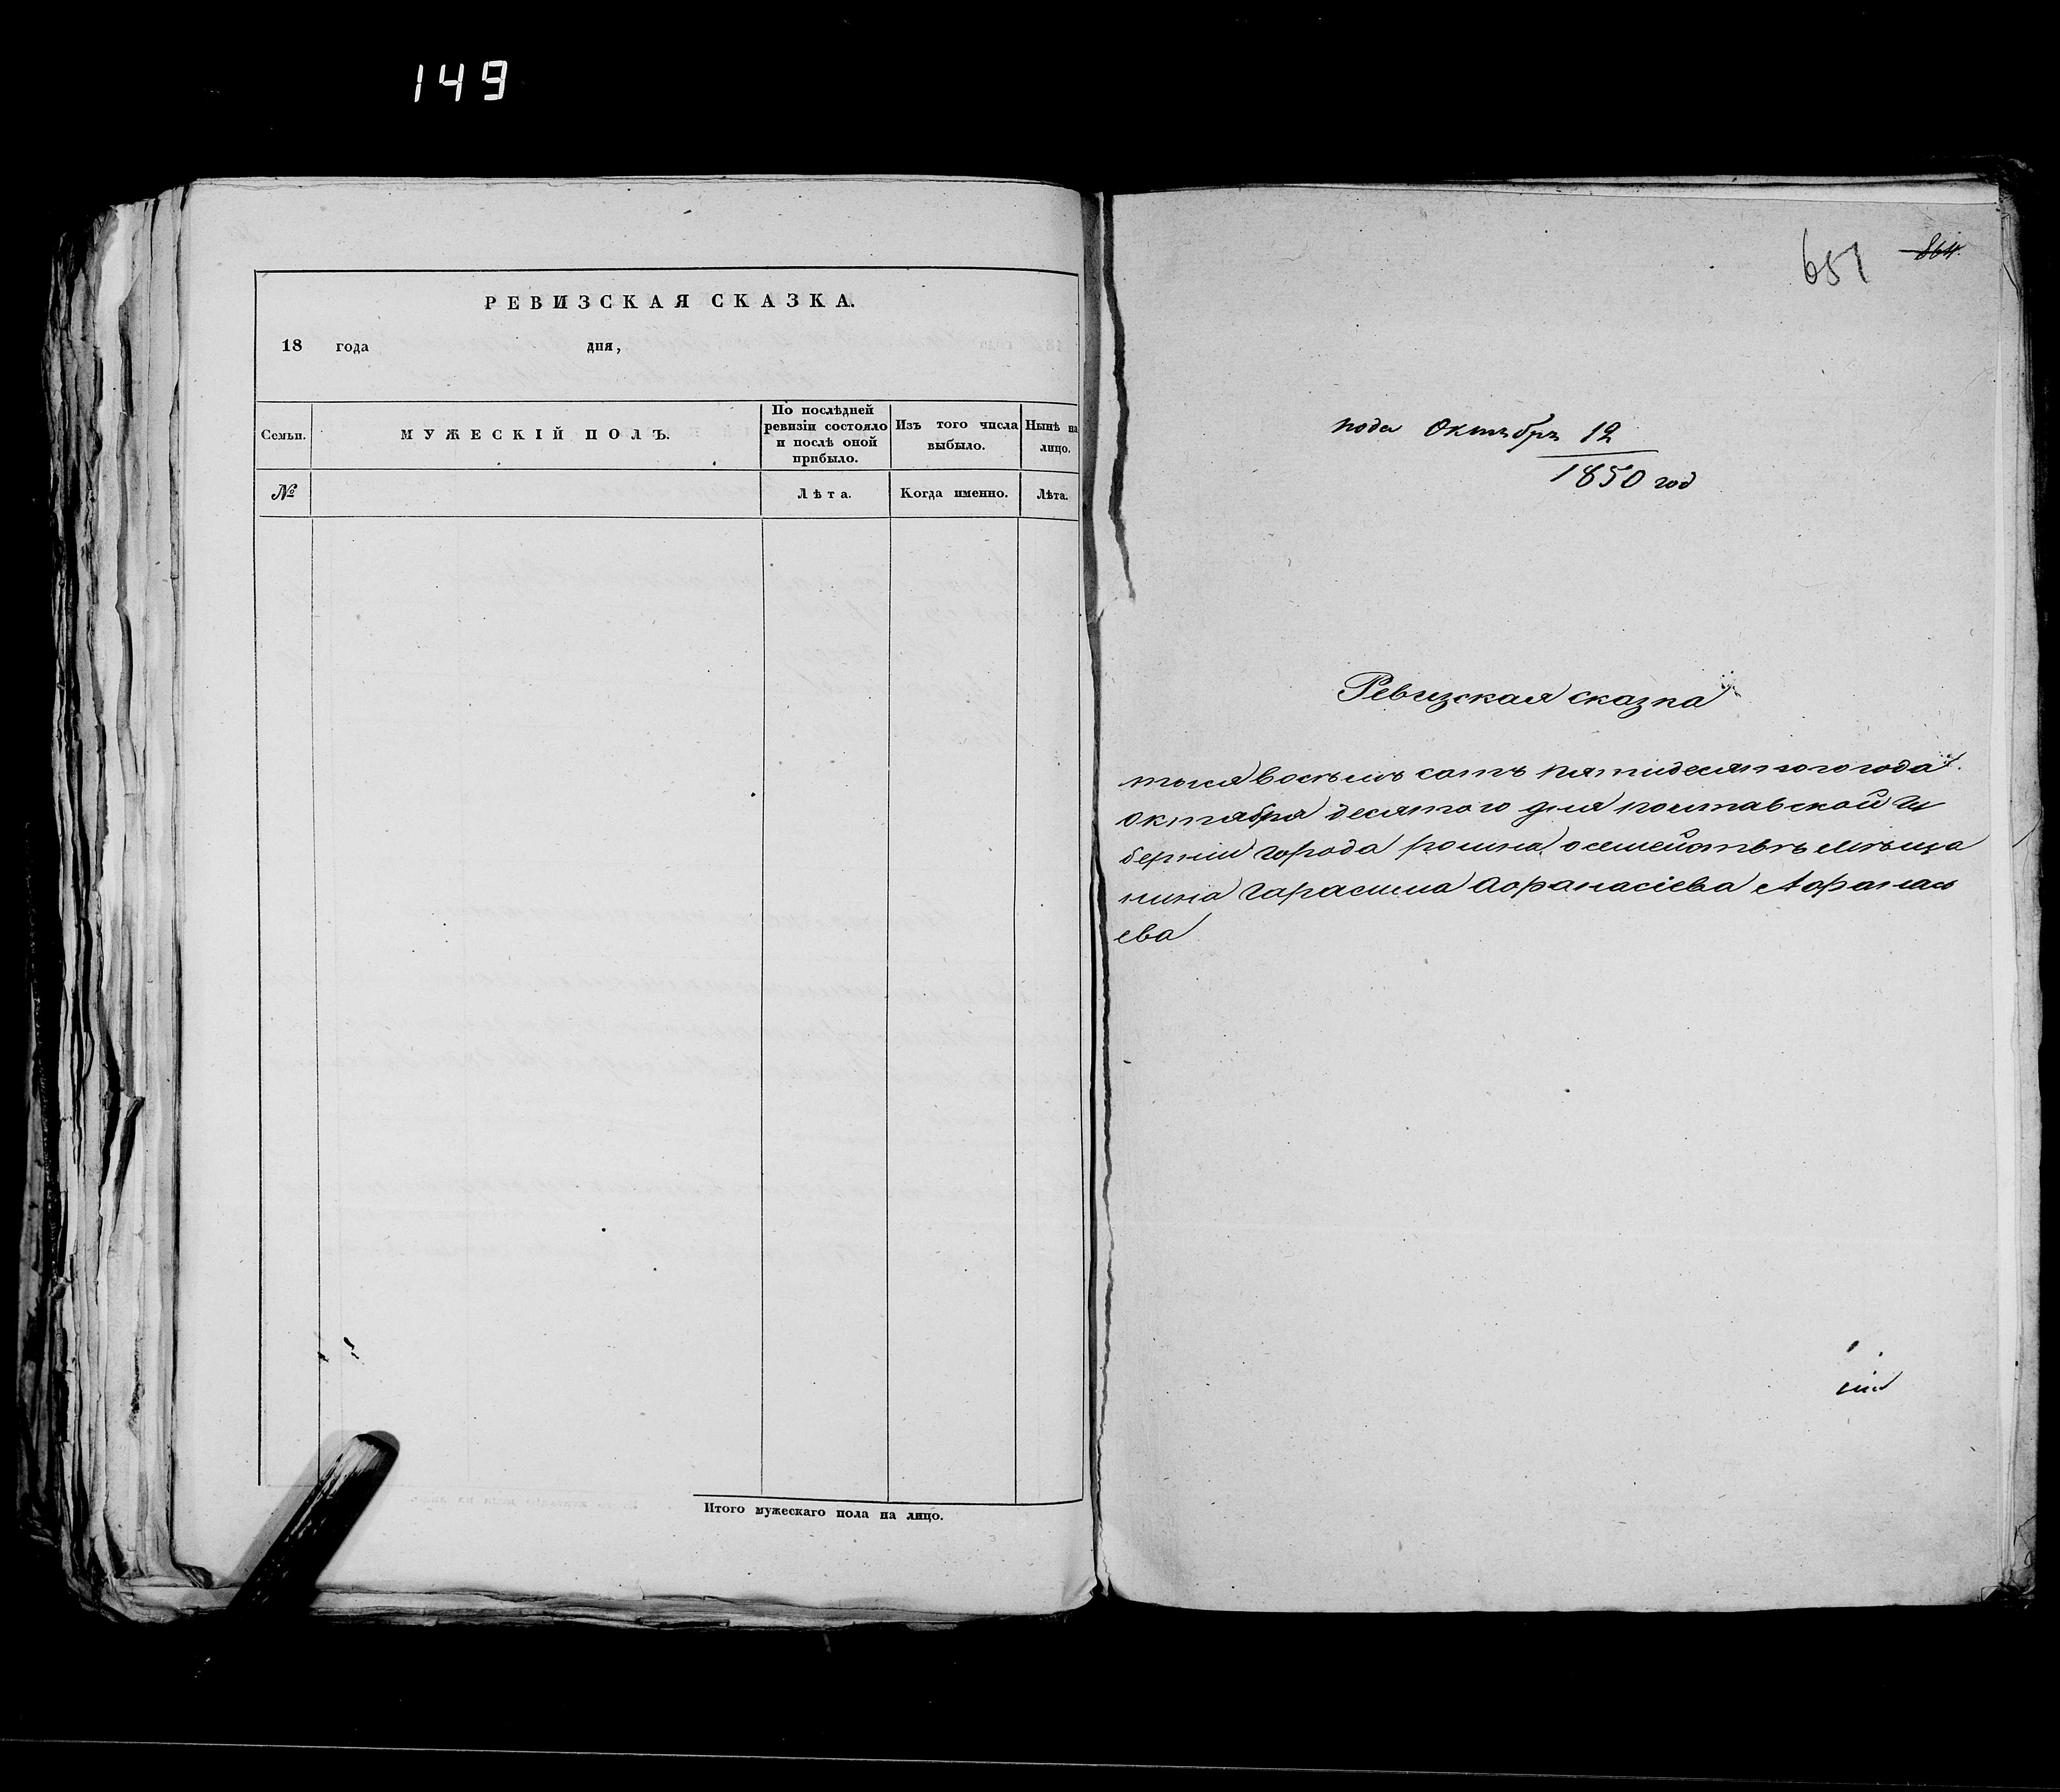 149
РЕВИЗСКАЯ СКАЗКА.
18 года дня,
Семьи.
МУЖЕСКІЙ ПОЛЪ.
По послѣдней
ревизіи состояло
и послѣ оной
прибыло.
Изъ того числа
выбыло.
Нынѣ на
лицо.
№
Лѣта.
Когда именно.
Лѣта.
Итого мужескаго пола на лицо.
651 864
пода Октябръ 12
1850 год
Ревизская сказка
тысявосемъ сотъ пятидесятого года
октября десятого дня полтавской гу
берніи города ромна о семействѣ мѣща
нина Гарасима Афранасіева Афранась
ева